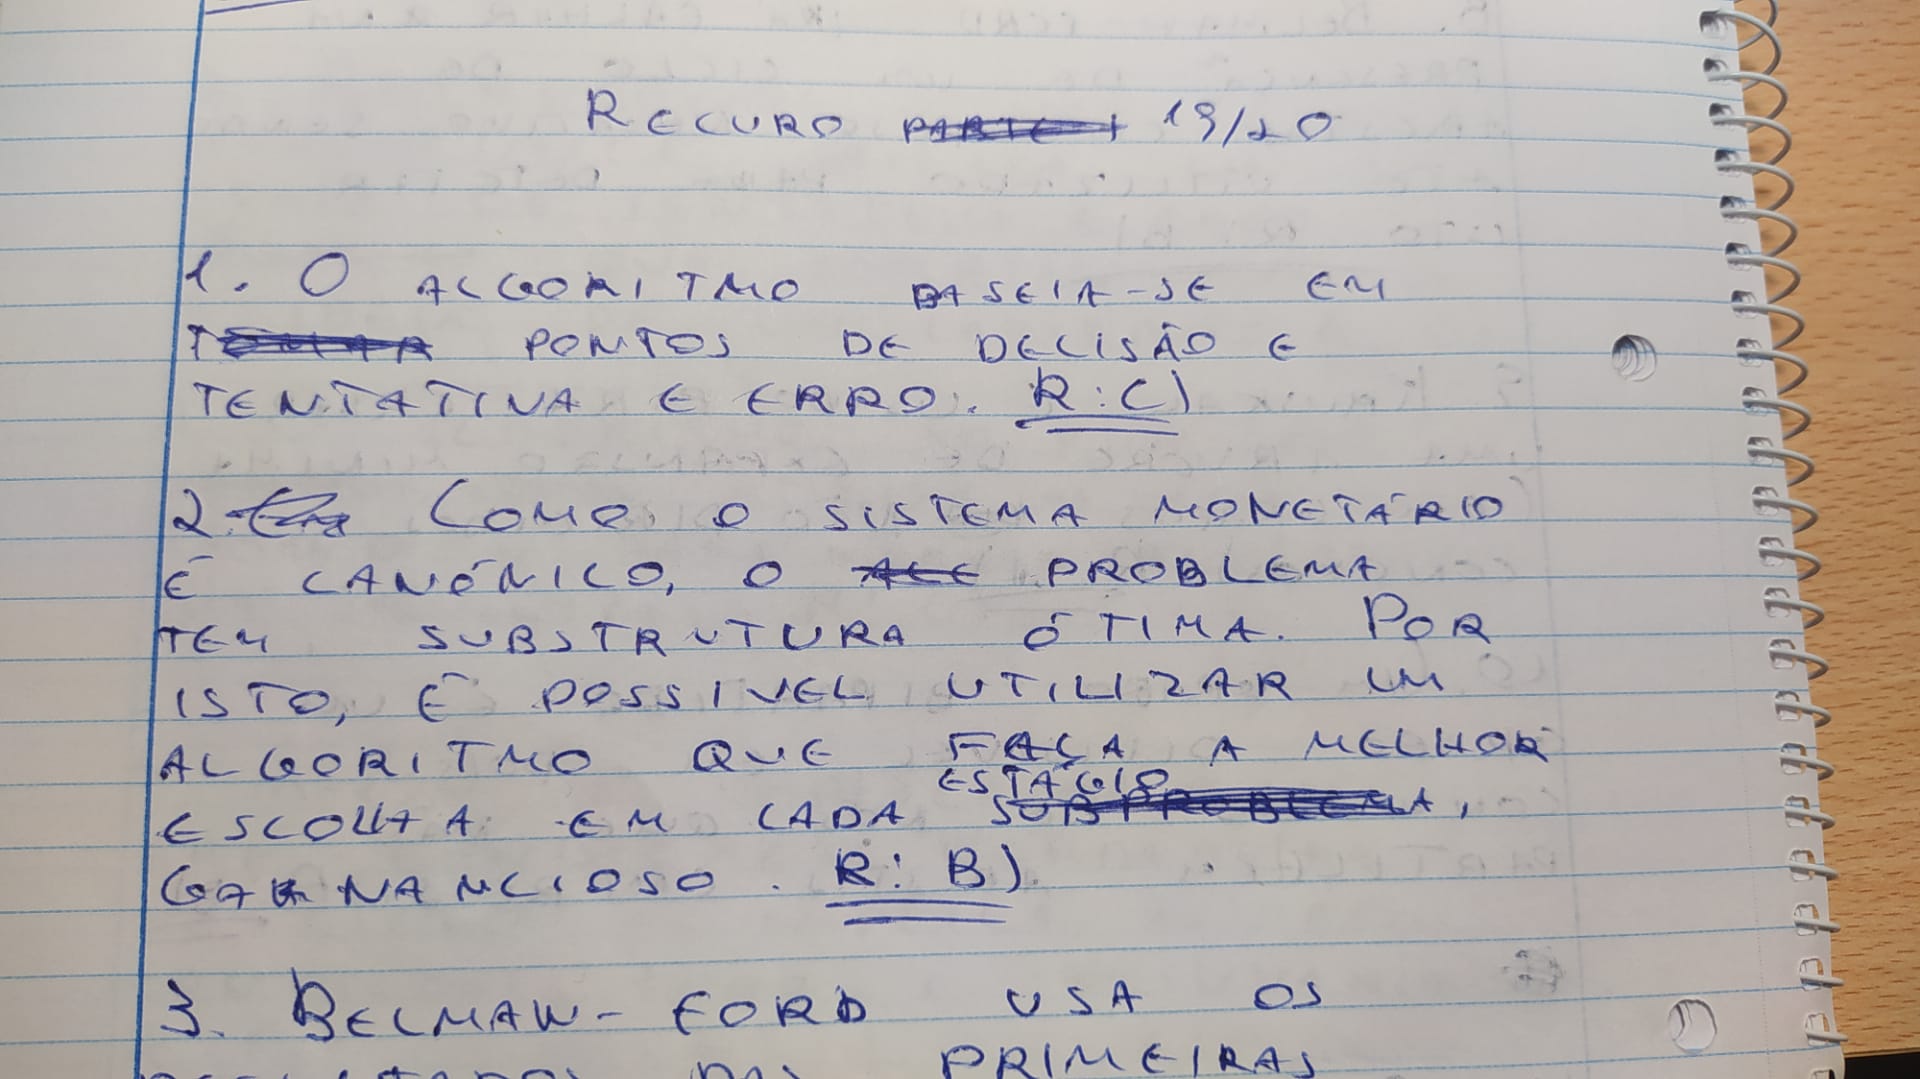 RECURO PARTE 1 19/20
1. O ALGORITMO BASEIA-SE EM
PONTOS DE DECISÃO E
TENTATIVA E ERRO. R:C)
2. COMO O SISTEMA MONETÁRIO
É CANÓNICO, O PROBLEMA
TEM SUBSTRUTURA ÓTIMA. POR
ISTO, É POSSIVEL UTILIZAR UM
ALGORITMO QUE FAÇA A MELHOR
ESTÁGIO
ESCOLHA EM CADA SUBPROBLEMA,
GANANCIOSO. R: B).
3. BELMAN-FORD USA OS
PRIMEIRAS